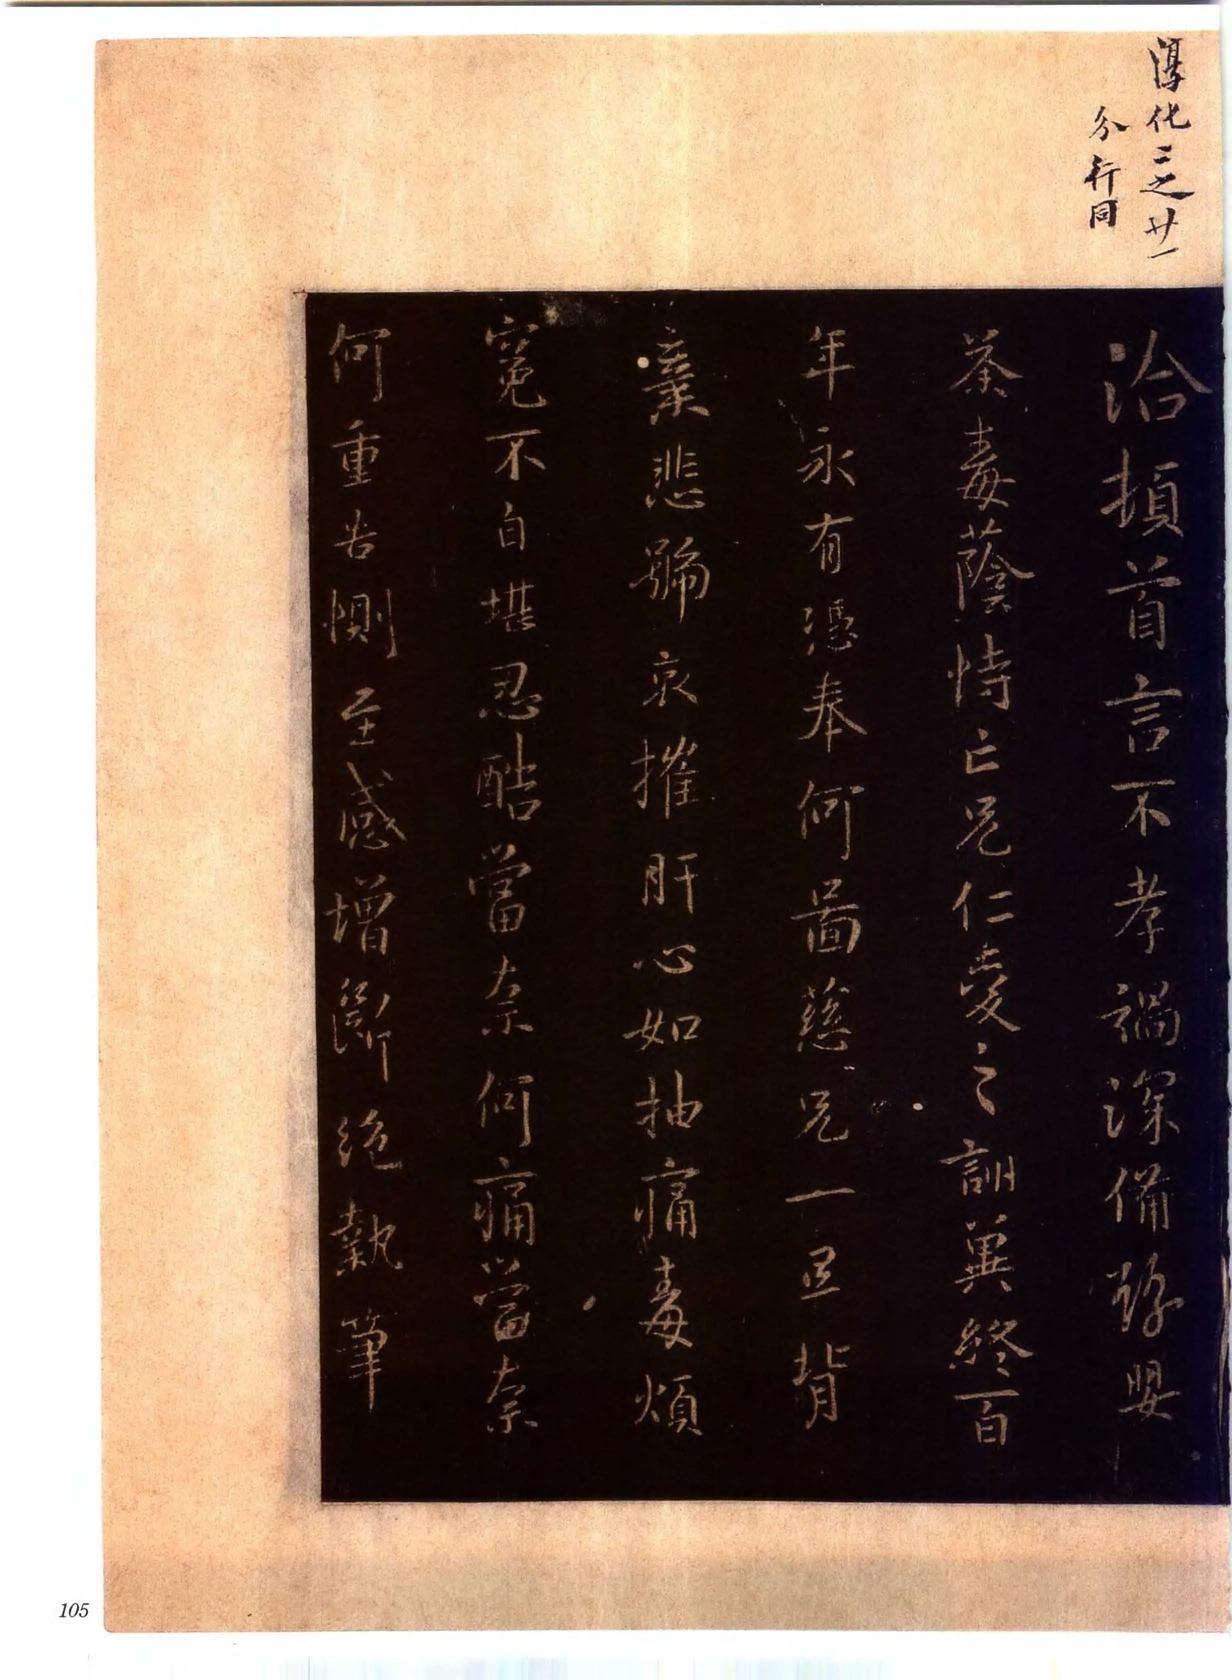 淳化三之廿一
分行同
洽頓首言不孝禍深備豫嬰
荼毒蔭恃亡兄仁愛之訓冀終百
年永有憑奉何圖慈兄一旦背
棄悲號哀摧肝心如抽痛毒煩
冤不自堪忍酷當奈何痛當奈
何重告惻至感增斷絕執筆
105